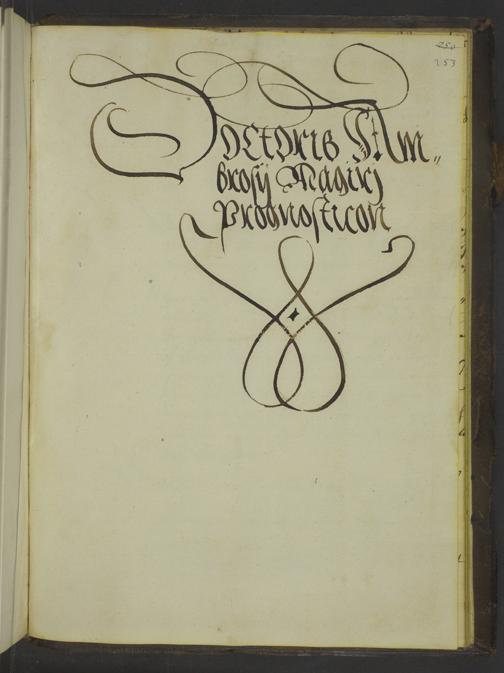 253
Doctoris Am„
brosij Magirj
Prognosticon